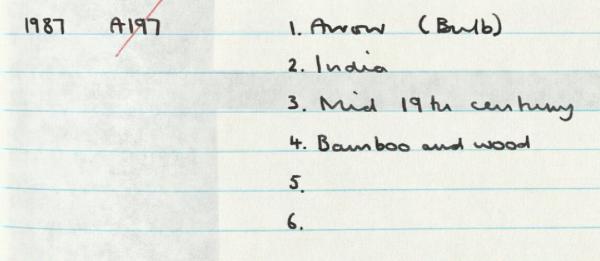 1987 A197 1. Arrow (Bulb)
2. India
3. Mid 19th century
4. Bamboo and wood
5.
6.